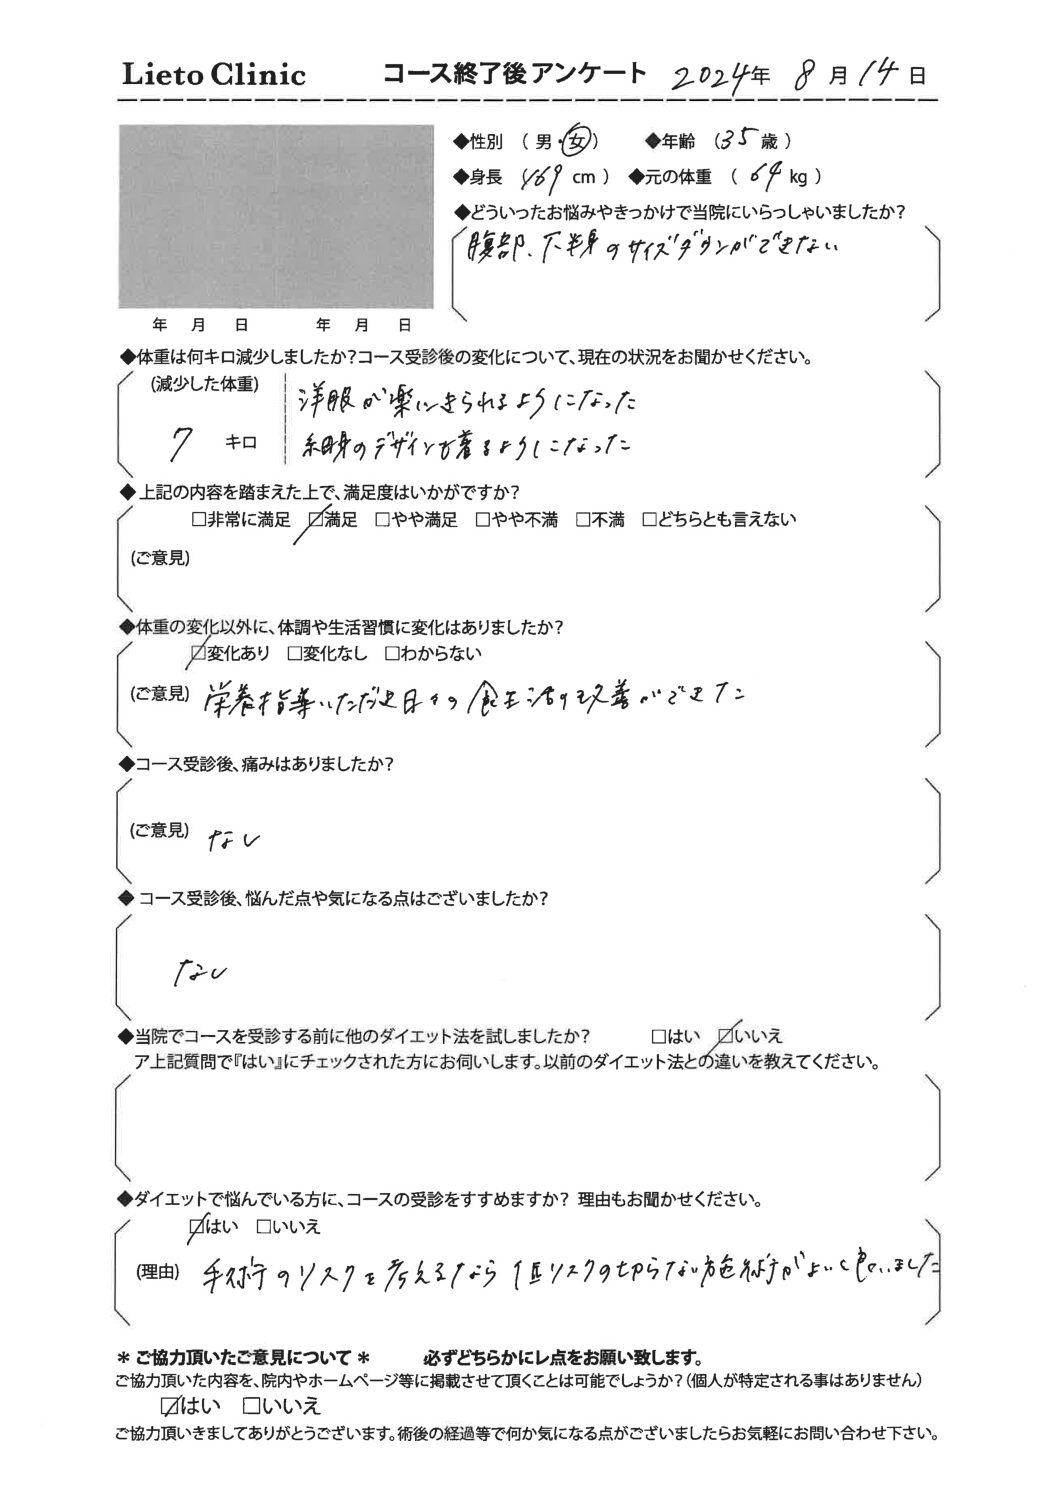 Lieto Clinic コース終了後アンケート 2024年 8月14日
◆性別 （ 男・女） ◆年齢 （35歳 ）
◆身長 （169 cm ） ◆元の体重 （ 64 kg ）
◆どういったお悩みやきっかけで当院にいらっしゃいましたか？
腹部、下半身のサイズダウンができない
年 月 日 年 月 日
◆体重は何キロ減少しましたか？コース受診後の変化について、現在の状況をお聞かせください。
(減少した体重) 洋服が楽にきられるようになった
7 キロ 細身のデザインも着るようになった
◆ 上記の内容を踏まえた上で、満足度はいかがですか？
□非常に満足 ☑満足 □やや満足 □やや不満 □不満 □どちらとも言えない
(ご意見)
◆体重の変化以外に、体調や生活習慣に変化はありましたか？
☑変化あり □変化なし □わからない
(ご意見) 栄養指導いただき日々の食生活の改善ができた
◆コース受診後、痛みはありましたか？
(ご意見) なし
◆ コース受診後、悩んだ点や気になる点はございましたか？
なし
◆当院でコースを受診する前に他のダイエット法を試しましたか？ □はい ☑いいえ
ア上記質問で『はい』にチェックされた方にお伺いします。以前のダイエット法との違いを教えてください。
◆ダイエットで悩んでいる方に、コースの受診をすすめますか？ 理由もお聞かせください。
☑はい □いいえ
(理由) 手術のリスクを考えるなら低リスクの切らない施術がよいと思いました
＊ ご協力頂いたご意見について ＊ 必ずどちらかにレ点をお願い致します。
ご協力頂いた内容を、院内やホームページ等に掲載させて頂くことは可能でしょうか？（個人が特定される事はありません）
☑はい □いいえ
ご協力頂いきましてありがとうございます。術後の経過等で何か気になる点がございましたらお気軽にお問い合わせ下さい。